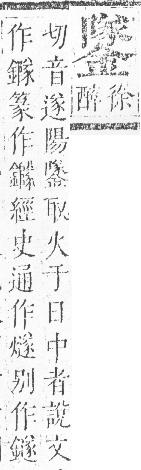 鐆徐
醉
切音遂陽鐆取火于日中者說文
作鐩篆作鐩經史通作燧别作鐩